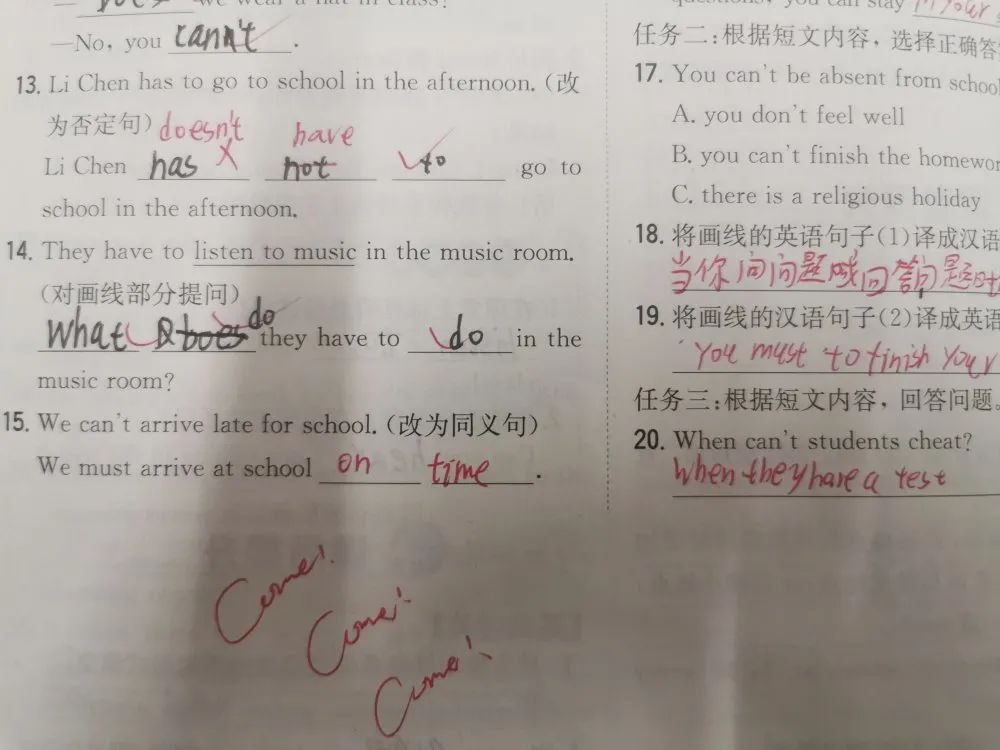 we wear a hat in class?
—No, you can't.
13. Li Chen has to go to school in the afternoon. (改
为否定句) doesn't have
Li Chen has not to go to
school in the afternoon.
14. They have to listen to music in the music room.
(对画线部分提问)
What do they have to do in the
music room?
15. We can't arrive late for school. (改为同义句)
We must arrive at school on time.
Come!
Come!
Come!
questions, you can stay in your
任务二:根据短文内容,选择正确答
17. You can't be absent from school
A. you don't feel well
B. you can't finish the homewor
C. there is a religious holiday
18. 将画线的英语句子(1)译成汉语
当你问问题或回答问题时
19. 将画线的汉语句子(2)译成英语
You must to finish your
任务三:根据短文内容,回答问题。
20. When can't students cheat?
When they have a test